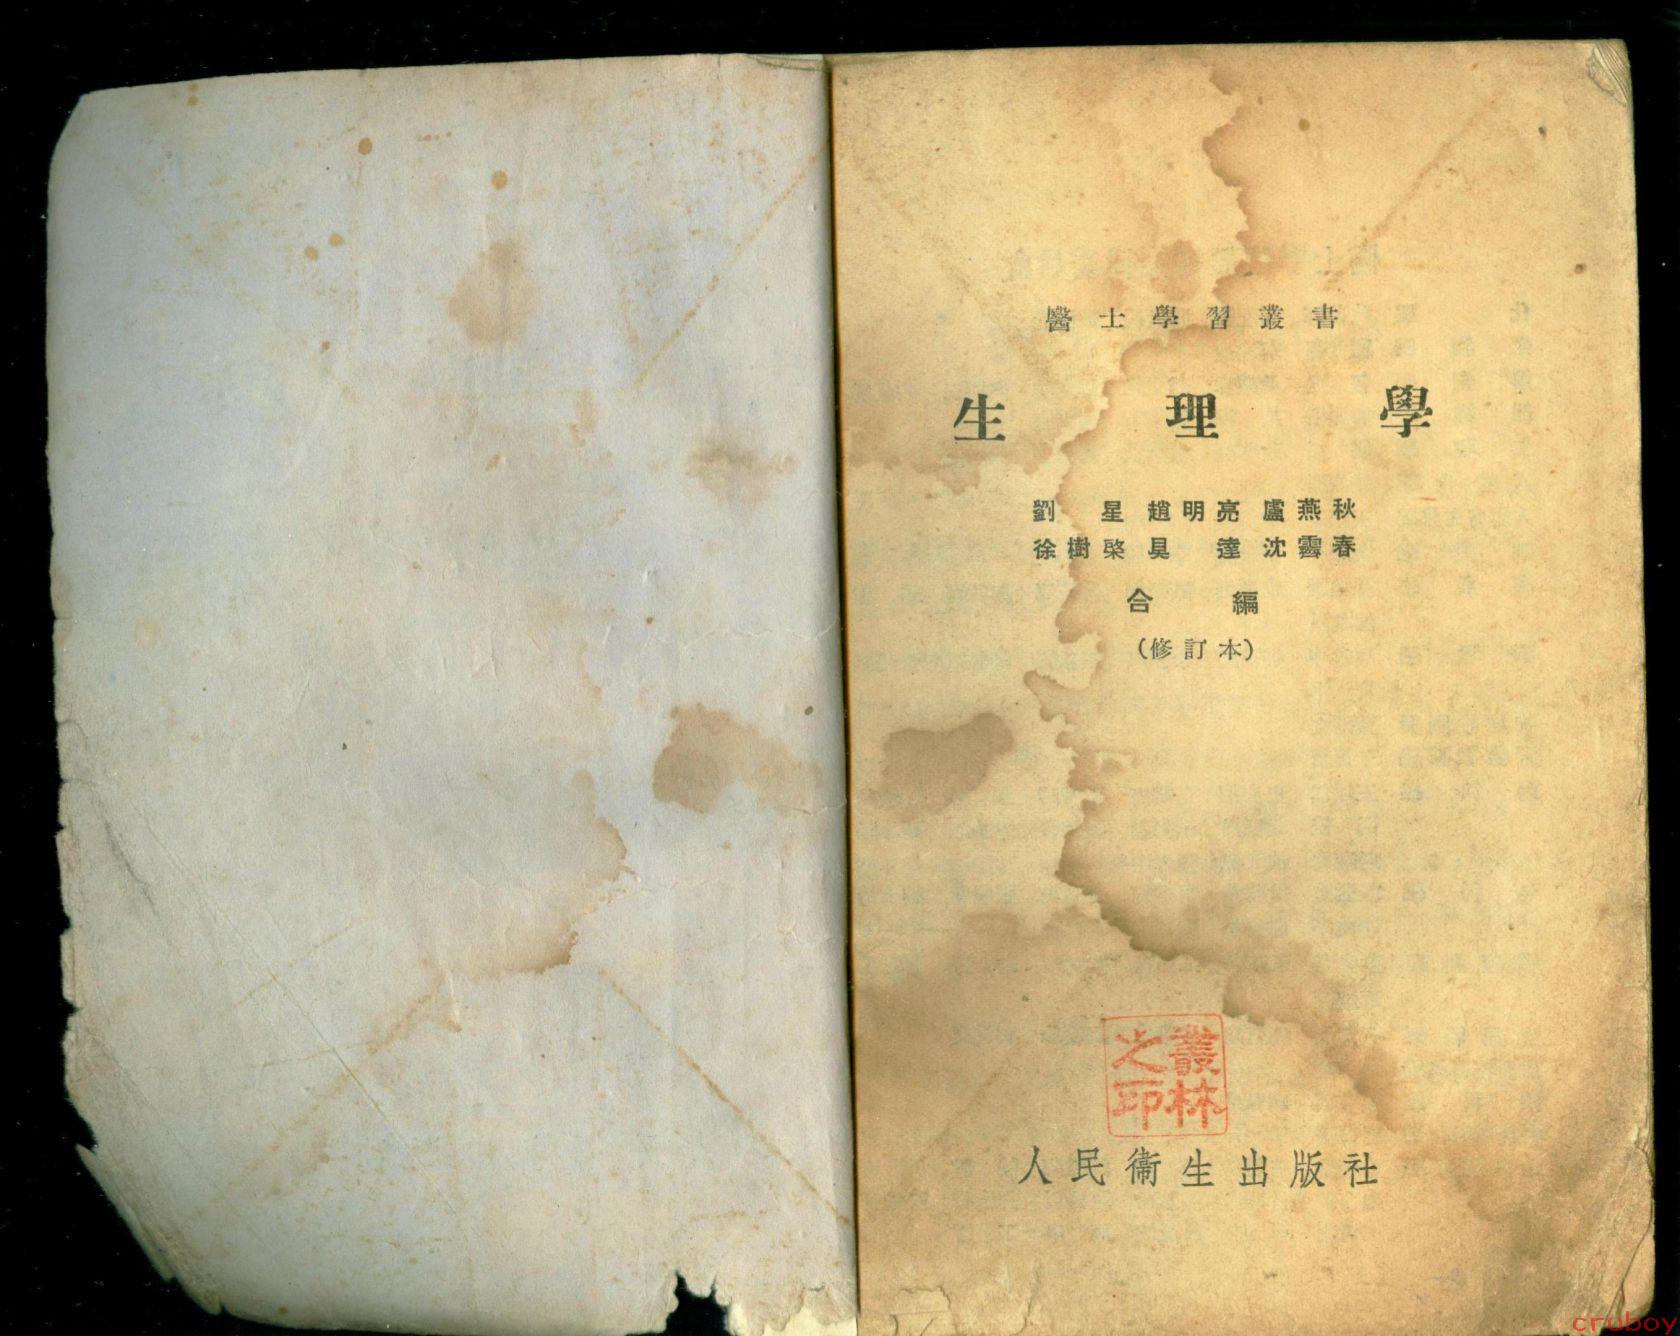 醫士學習叢書
生理學
劉星 趙明亮 盧燕秋
徐樹棨 吳達 沈霽春
合編
(修訂本)
叢林之印
人民衞生出版社
cruboy